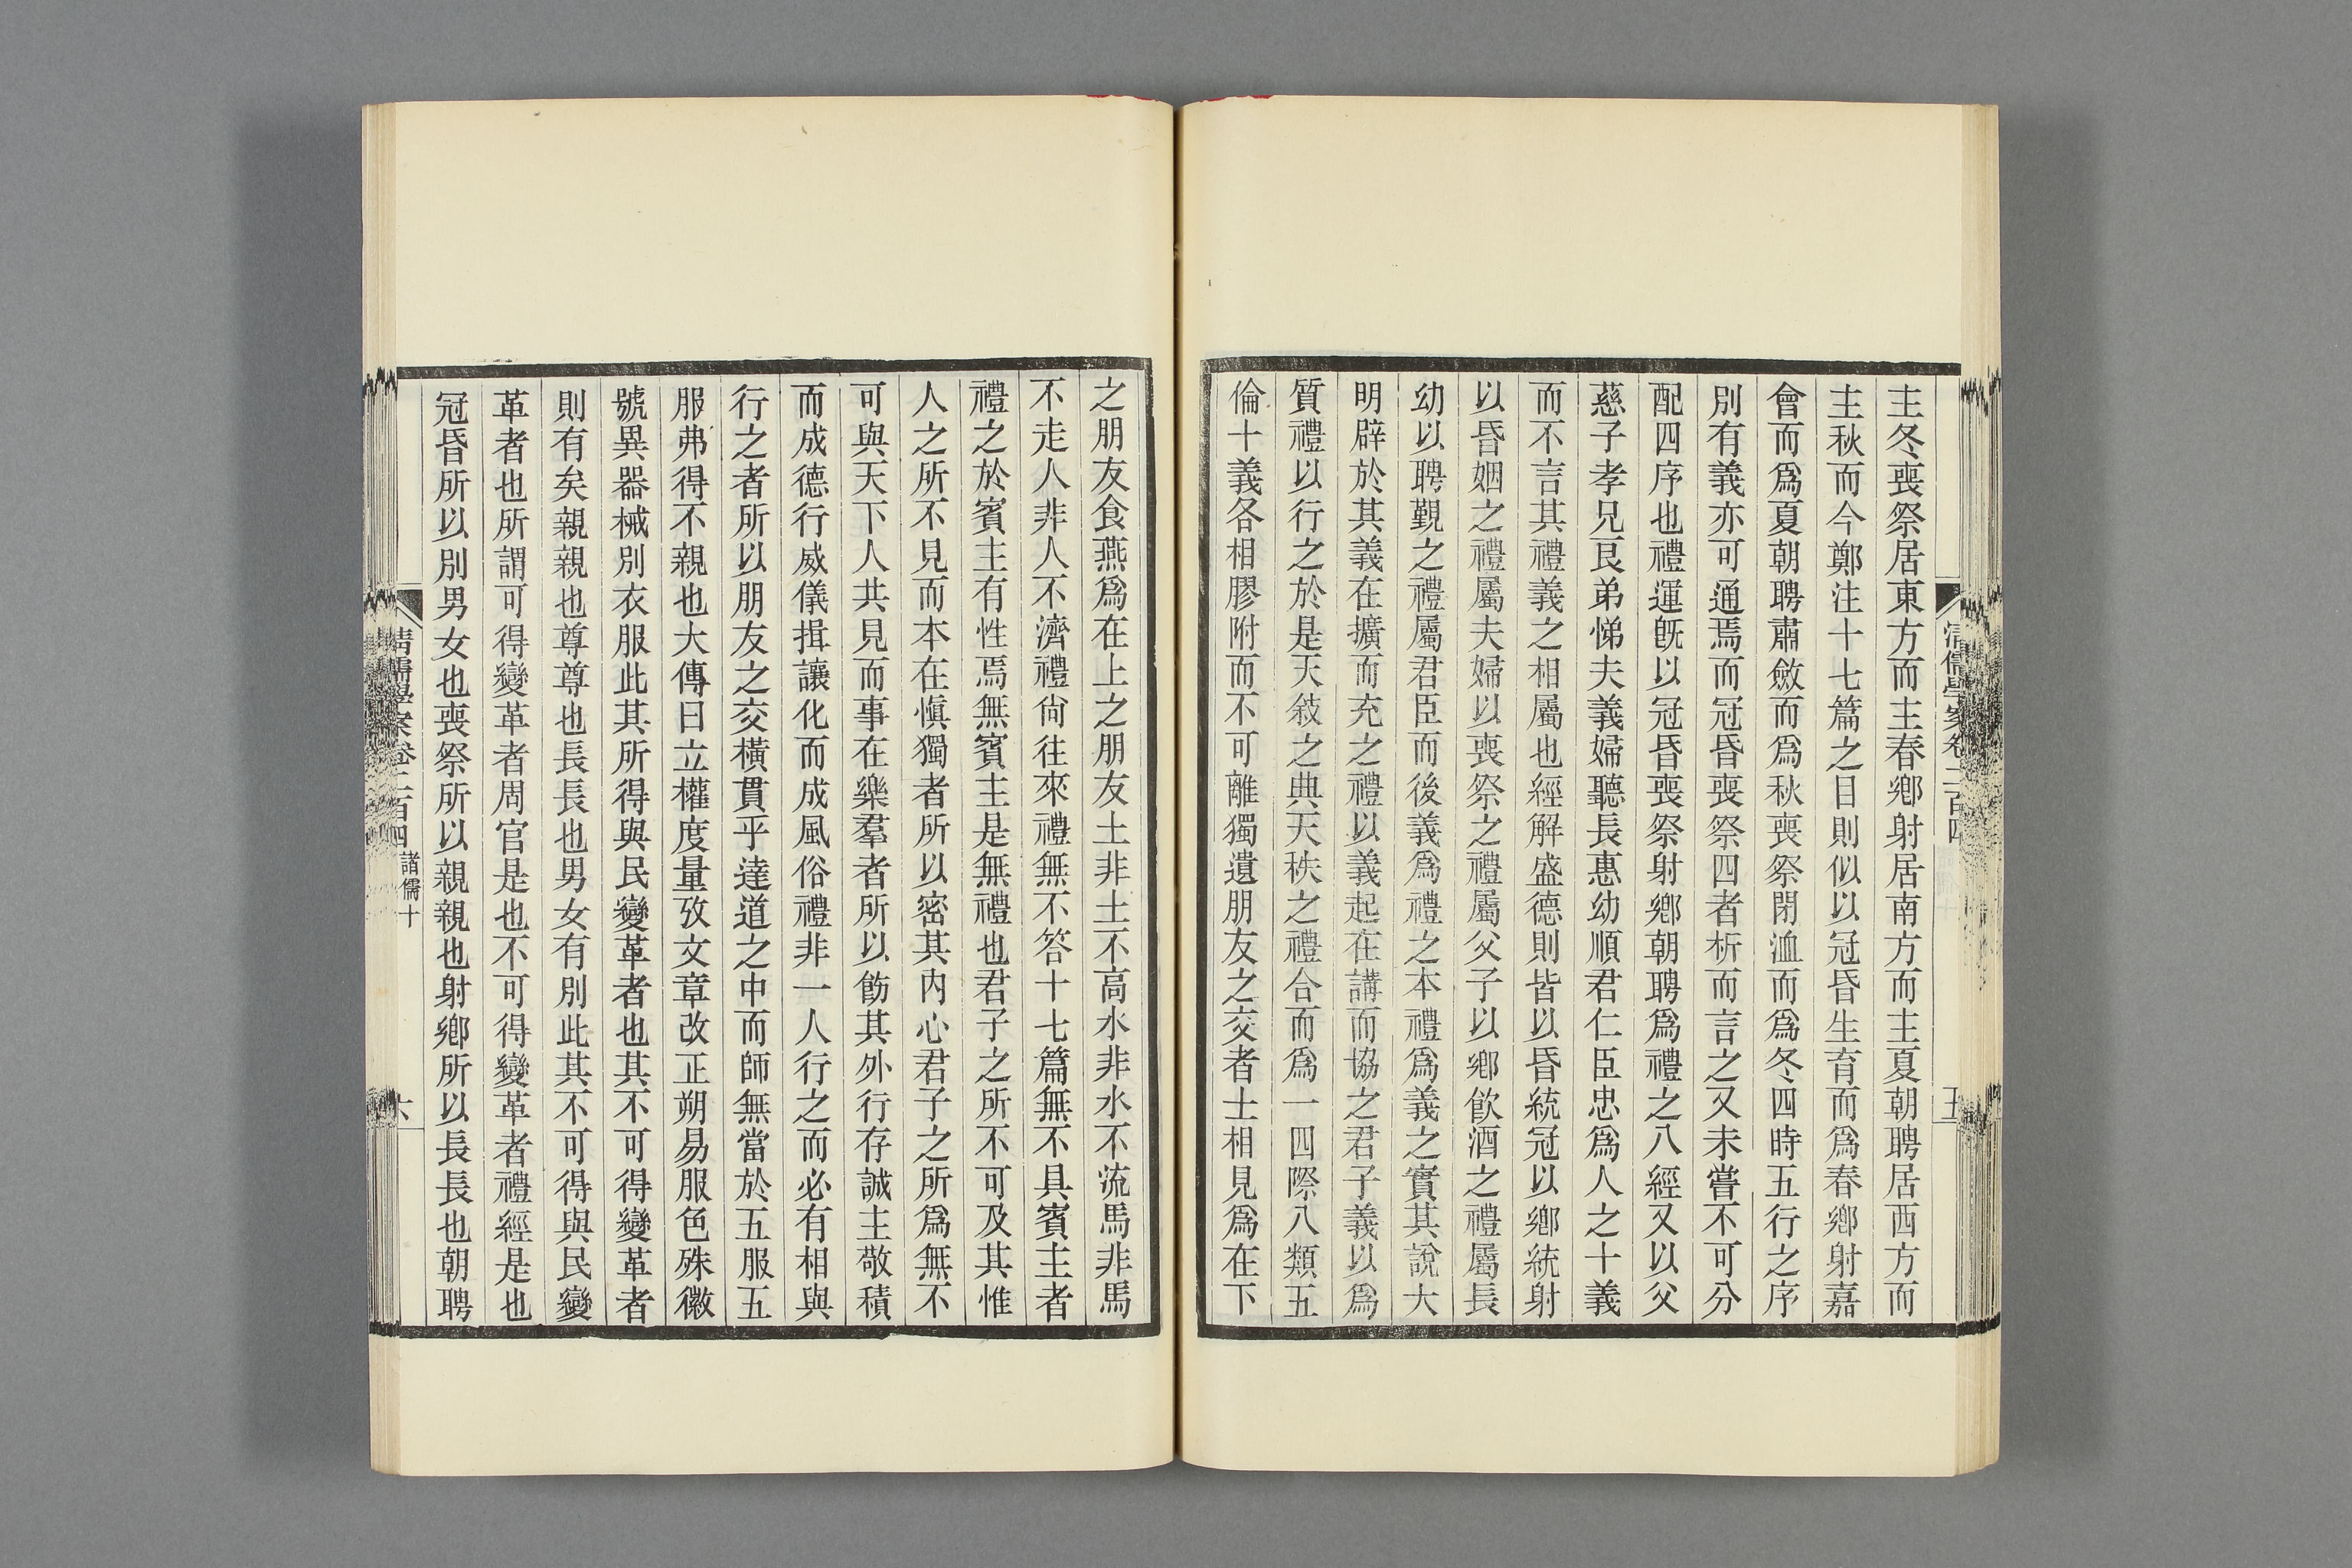 主冬喪祭居東方而主春鄕射居南方而主夏朝聘居西方而
主秋而今鄭注十七篇之目則似以冠昏生育而爲春鄕射嘉
會而爲夏朝聘肅斂而爲秋喪祭閉洫而爲冬四時五行之序
別有義亦可通焉而冠昏喪祭四者析而言之又未嘗不可分
配四序也禮運旣以冠昏喪祭射鄕朝聘爲禮之八經又以父
慈子孝兄良弟悌夫義婦聽長惠幼順君仁臣忠爲人之十義
而不言其禮義之相屬也經解盛德則皆以昏統冠以鄕統射
以昏姻之禮屬夫婦以喪祭之禮屬父子以鄕飮酒之禮屬長
幼以聘覲之禮屬君臣而後義爲禮之本禮爲義之實其說大
明辟於其義在擴而充之禮以義起在講而協之君子義以爲
質禮以行之於是天敍之典天秩之禮合而爲一四際八類五
倫十義各相膠附而不可離獨遺朋友之交者士相見爲在下
清儒學案卷二百四
五
之朋友食燕爲在上之朋友土非土不高水非水不流馬非馬
不走人非人不濟禮尙往來禮無不答十七篇無不具賓主者
禮之於賓主有性焉無賓主是無禮也君子之所不可及其惟
人之所不見而本在愼獨者所以密其內心君子之所爲無不
可與天下人共見而事在樂羣者所以飭其外行存誠主敬積
而成德行威儀揖讓化而成風俗禮非一人行之而必有相與
行之者所以朋友之交橫貫乎達道之中而師無當於五服五
服弗得不親也大傳曰立權度量攷文章改正朔易服色殊徽
號異器械別衣服此其所得與民變革者也其不可得變革者
則有矣親親也尊尊也長長也男女有別此其不可得與民變
革者也所謂可得變革者周官是也不可得變革者禮經是也
冠昏所以別男女也喪祭所以親親也射鄕所以長長也朝聘
清儒學案卷二百四 諸儒十
六